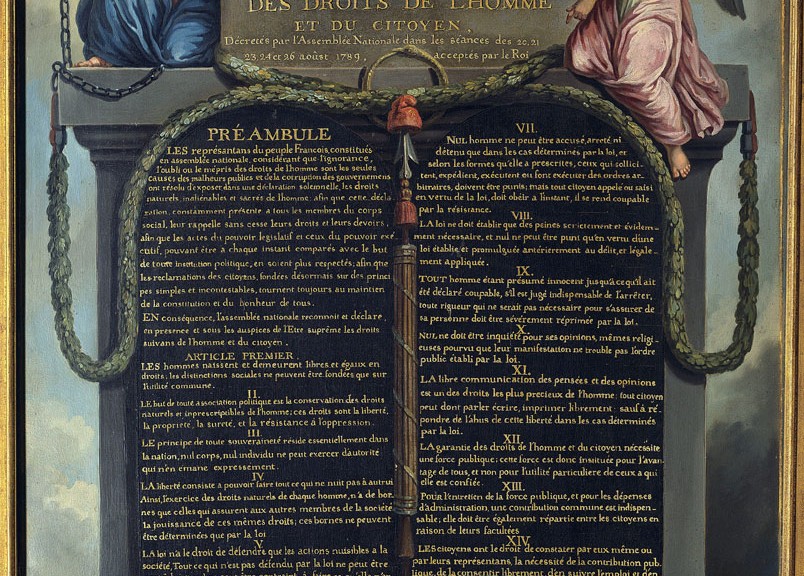 DES DROITS DE L'HOMME
ET DU CITOYEN,
Décretés par l'Assemblée Nationale dans les séances des 20, 21
23, 24 et 26 aoûst 1789, acceptés par le Roi
PRÉAMBULE
LES représantans du peuple François, constitués
en assemblée nationale, considérant que l'ignorance,
l'oubli ou le mépris des droits de l'homme sont les seules
causes des malheurs publics et de la corruption des gouvernemens
ont résolu d'exposer, dans une déclaration solemnelle, les droits
naturels, inaliénables et sacrés de l'homme; afin que cette décla
ration, constamment présente a tous les membres du corps
social, leur rappelle sans cesse leurs droits et leurs devoirs,
afin que les actes du pouvoir législatif et ceux du pouvoir exé
cutif, pouvant être a chaque instant comparés avec le but
de toute institution politique, en soient plus respectés; afin que
les reclamations des citoyens, fondées désormais sur des princi
pes simples et incontestables, tournent toujours au maintien
de la constitution et du bonheur de tous.
EN conséquence, l'assemblée nationale reconnoit et déclare,
en presence et sous les auspices de l'Etre suprême les droits
suivans de l'homme et du citoyen.
ARTICLE PREMIER.
LES hommes naissent et demeurent libres et égaux en
droits; les distinctions sociales ne peuvent être fondées que sur
l'utilité commune.
II.
LE but de toute association politique est la conservation des droits
naturels et inprescriptibles de l'homme; ces droits sont la liberté,
la propriété, la sureté, et la résistance à l'oppression.
III.
LE principe de toute souveraineté réside essentiellement dans
la nation, nul corps, nul individu ne peut exercer d'autorité
qui n'en émane expressément.
IV.
LA liberté consiste a pouvoir faire tout ce qui ne nuit pas à autrui
Ainsi, l'exercice des droits naturels de chaque homme, n'a de bor
nes que celles qui assurent aux autres membres de la société
la jouissance de ces mêmes droits; ces bornes ne peuvent
être déterminées que par la loi
V.
LA loi n'a le droit de défendre que les actions nuisibles a la
société. Tout ce qui n'est pas défendu par la loi ne peut être
VII.
NUL homme ne peut être accusé, arreté, ni
détenu que dans les cas déterminés par la loi, et
selon les formes qu'elle a prescrites, ceux qui sollici-
tent, expédient, exécutent ou font exécuter des ordres ar-
bitraires, doivent être punis; mais tout citoyen appelé ou saisi
en vertu de la loi, doit obéir a l'instant, il se rend coupable
par la résistance.
VIII.
LA loi ne doit établir que des peines strictement et évidem-
ment nécessaire, et nul ne peut être puni qu'en vertu d'une
loi établie, et promulguée antérierement au délit, et légale-
ment appliqué.
IX.
TOUT homme étant présumé innocent jusqu'a ce qu'il ait
été déclaré coupable, s'il est jugé indispensable de l'arrêter,
toute rigueur qui ne serait pas nécessaire pour s'assurer de
sa personne doit être sévèrement réprimée par la loi.
X.
NUL ne doit être inquiété pour ses opinions, mêmes religi-
euses pourvu que leur manifestation ne trouble pas l'ordre
public établi par la loi.
XI.
LA libre communication des pensées et des opinions
est un des droits les plus precieux de l'homme; tout citoyen
peut donc parler écrire, imprimer librement; sauf à ré-
pondre de l'abus de cette liberté dans les cas déterminés
par la loi.
XII.
LA garantie des droits de l'homme et du citoyen nécessite
une force publique; cette force est donc instituée pour l'avan
tage de tous, et non pour l'utilité particuliere de ceux a qui
elle est confiée.
XIII.
POUR l'entretien de la force publique, et pour les dépenses
d'administration, une contribution commune est indispen-
sable; elle doit être également répartie entre les citoyens en
raison de leurs facultées
XIV.
LES citoyens ont le droit de constater par eux même ou
par leurs représentans, la nécessité de la contribution pub-
lique, de la consentir librement, d'en suivre l'emploi et d'en